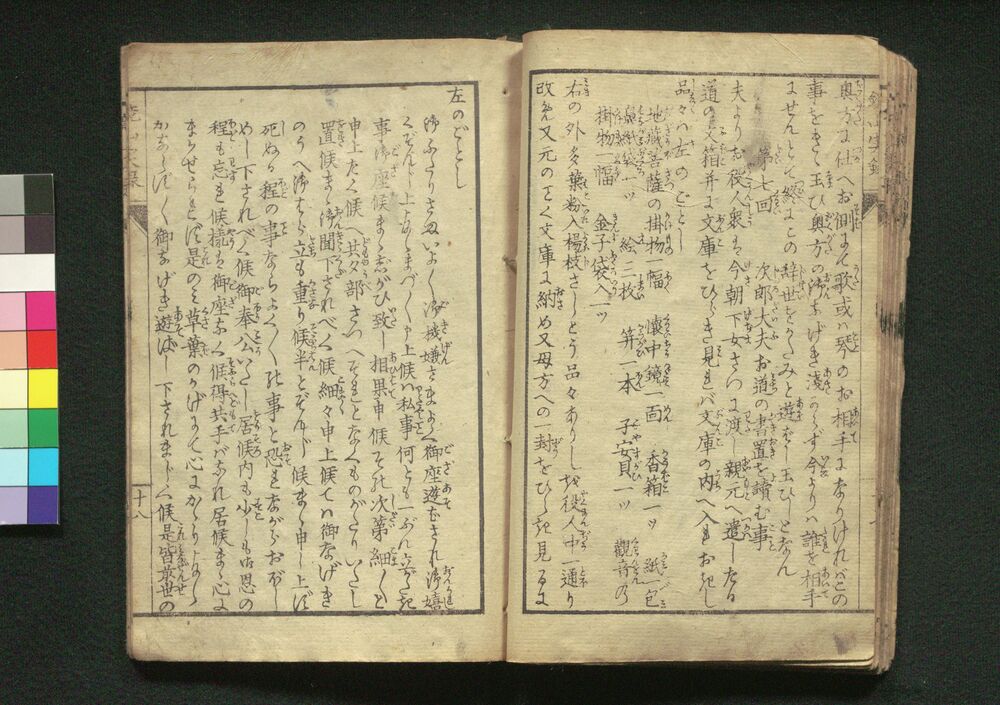 奥方に仕へお側にて歌或ハ琴のお相手になりければこの
事をきゝ玉ひ奥方の御なげき浅からず今よりハ誰を相手
にせんとて終にこの辞世をかたみと遊ばし玉ひしとなん
第七回 次郎大夫お道の書置を讀む事
夫よりお役人衆も今朝下女さつに渡し親元へ遣したる
道の文箱并に文庫をひらき見れバ文庫の内へ入れおきし
品々ハ左のごとし
地藏菩薩の掛物一幅 懐中鏡一面 香箱一ッ 紙一包
鼻紙袋一ッ 絵二枚 笄一本 子安貝一ッ 觀音の
掛物一幅 金子袋入一ッ
右の外多葉粉入楊枝さしとう品々ありしを役人中一通り
改め又元のごく文庫に納め又母方への一封をひらき見るに
左のごとし
御ふたりさまいよ〳〵御機嫌さまよく御座遊バされ御嬉
くぞんじ上まゐらせ候私事何とも一ぶん立がたき
事御座候まゝ志がひ致し相果申候その次第細〳〵と
申上たく候へ共夕部さつへそれとなくものがたりいたし
置候まゝ御聞下されべく候細々申上候てハ御なげき
のうへ御はら立も重り候半とぞんじ候まゝ申し上ず
死ぬる程の事ならよく〳〵の事と恐れながらおぼし
めし下されべく候御奉公いたし居候内も少しも御恩の
程も忘れ候儀も御座なく候得共手がはなれ居候まゝ心に
まかせられず是のミ草葉のかげまで心にかゝりまゐらせ
かならず〳〵御なげき遊ばし下されまじく候是皆前世の
十八